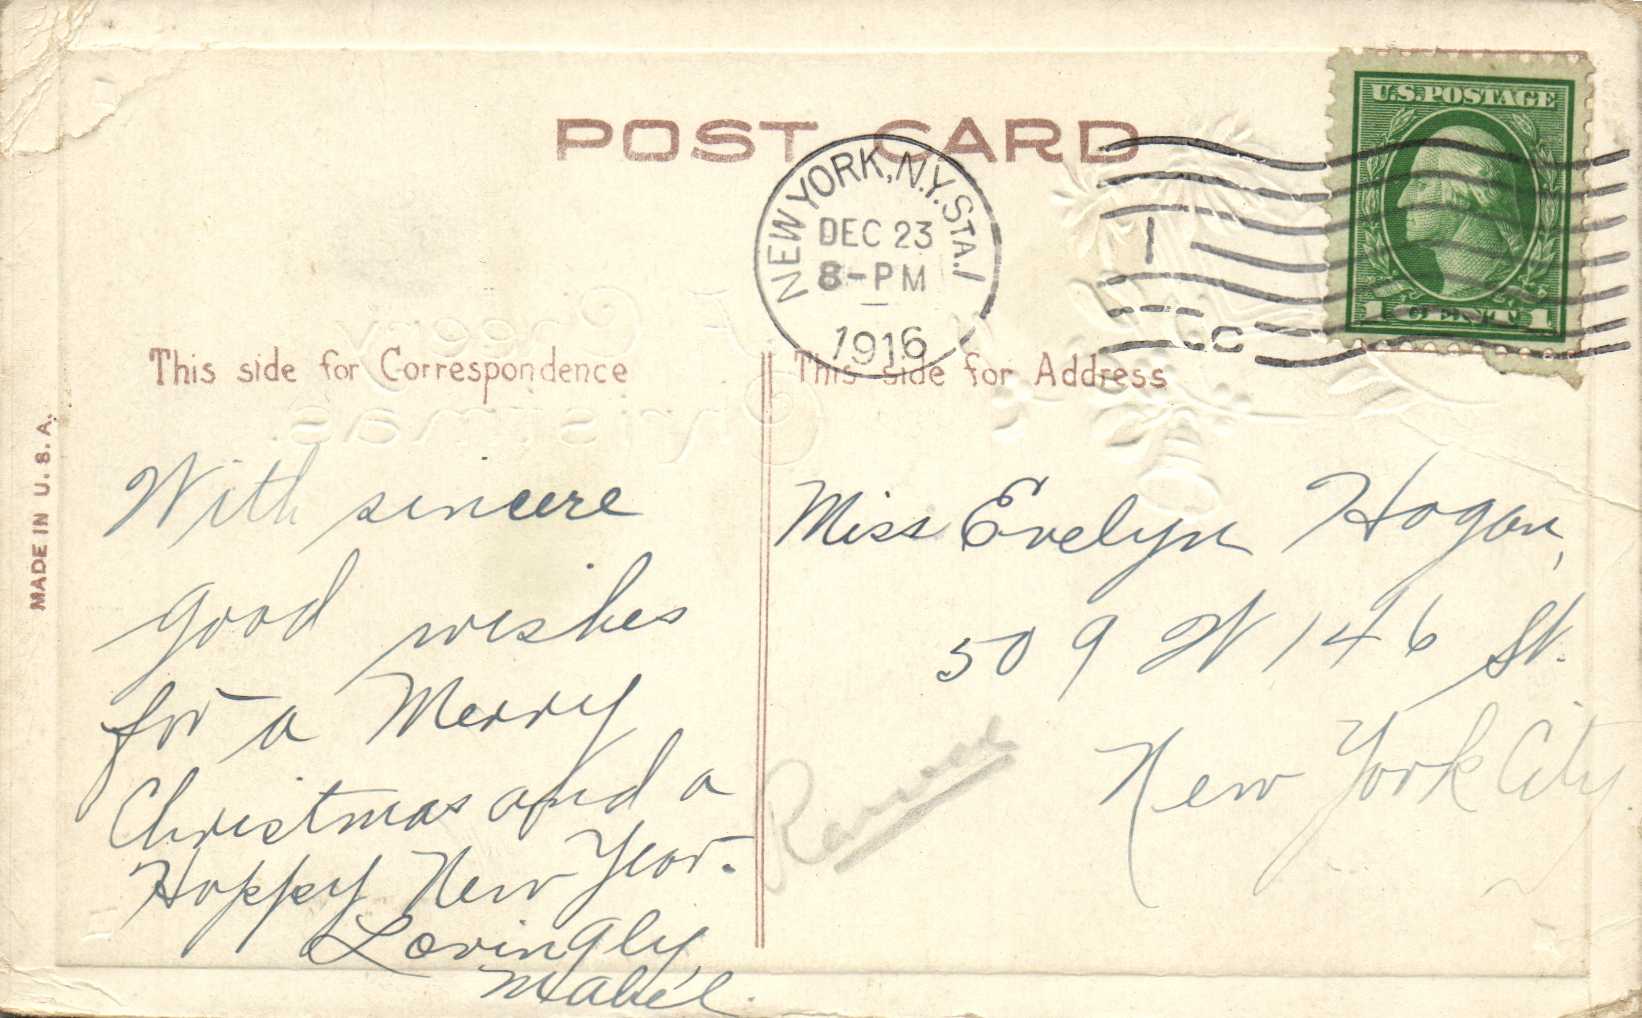 POST CARD
U.S. POSTAGE
NEW YORK, N.Y. STA. 1
DEC 23
8-PM
1916
This side for Correspondence
This side for Address
MADE IN U.S.A.
A Cheery
Christmas.
With sincere
good wishes
for a Merry
Christmas and a
Happy New Year.
Lovingly,
Mabel.
Miss Evelyn Hogan,
509 W 146 St.
New York City